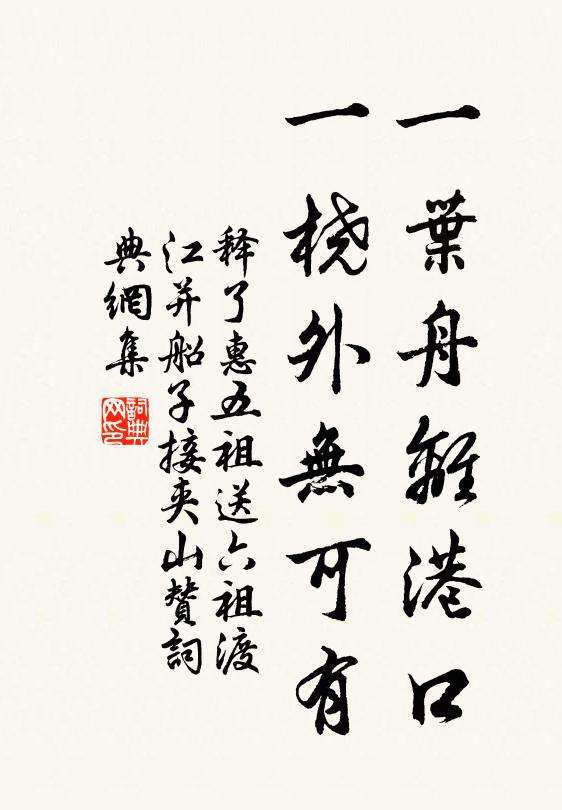 一葉舟離港口
一桡外無可有
释了惠五祖送六祖渡
江并船子接夹山贊詞
典網集
詞典网印